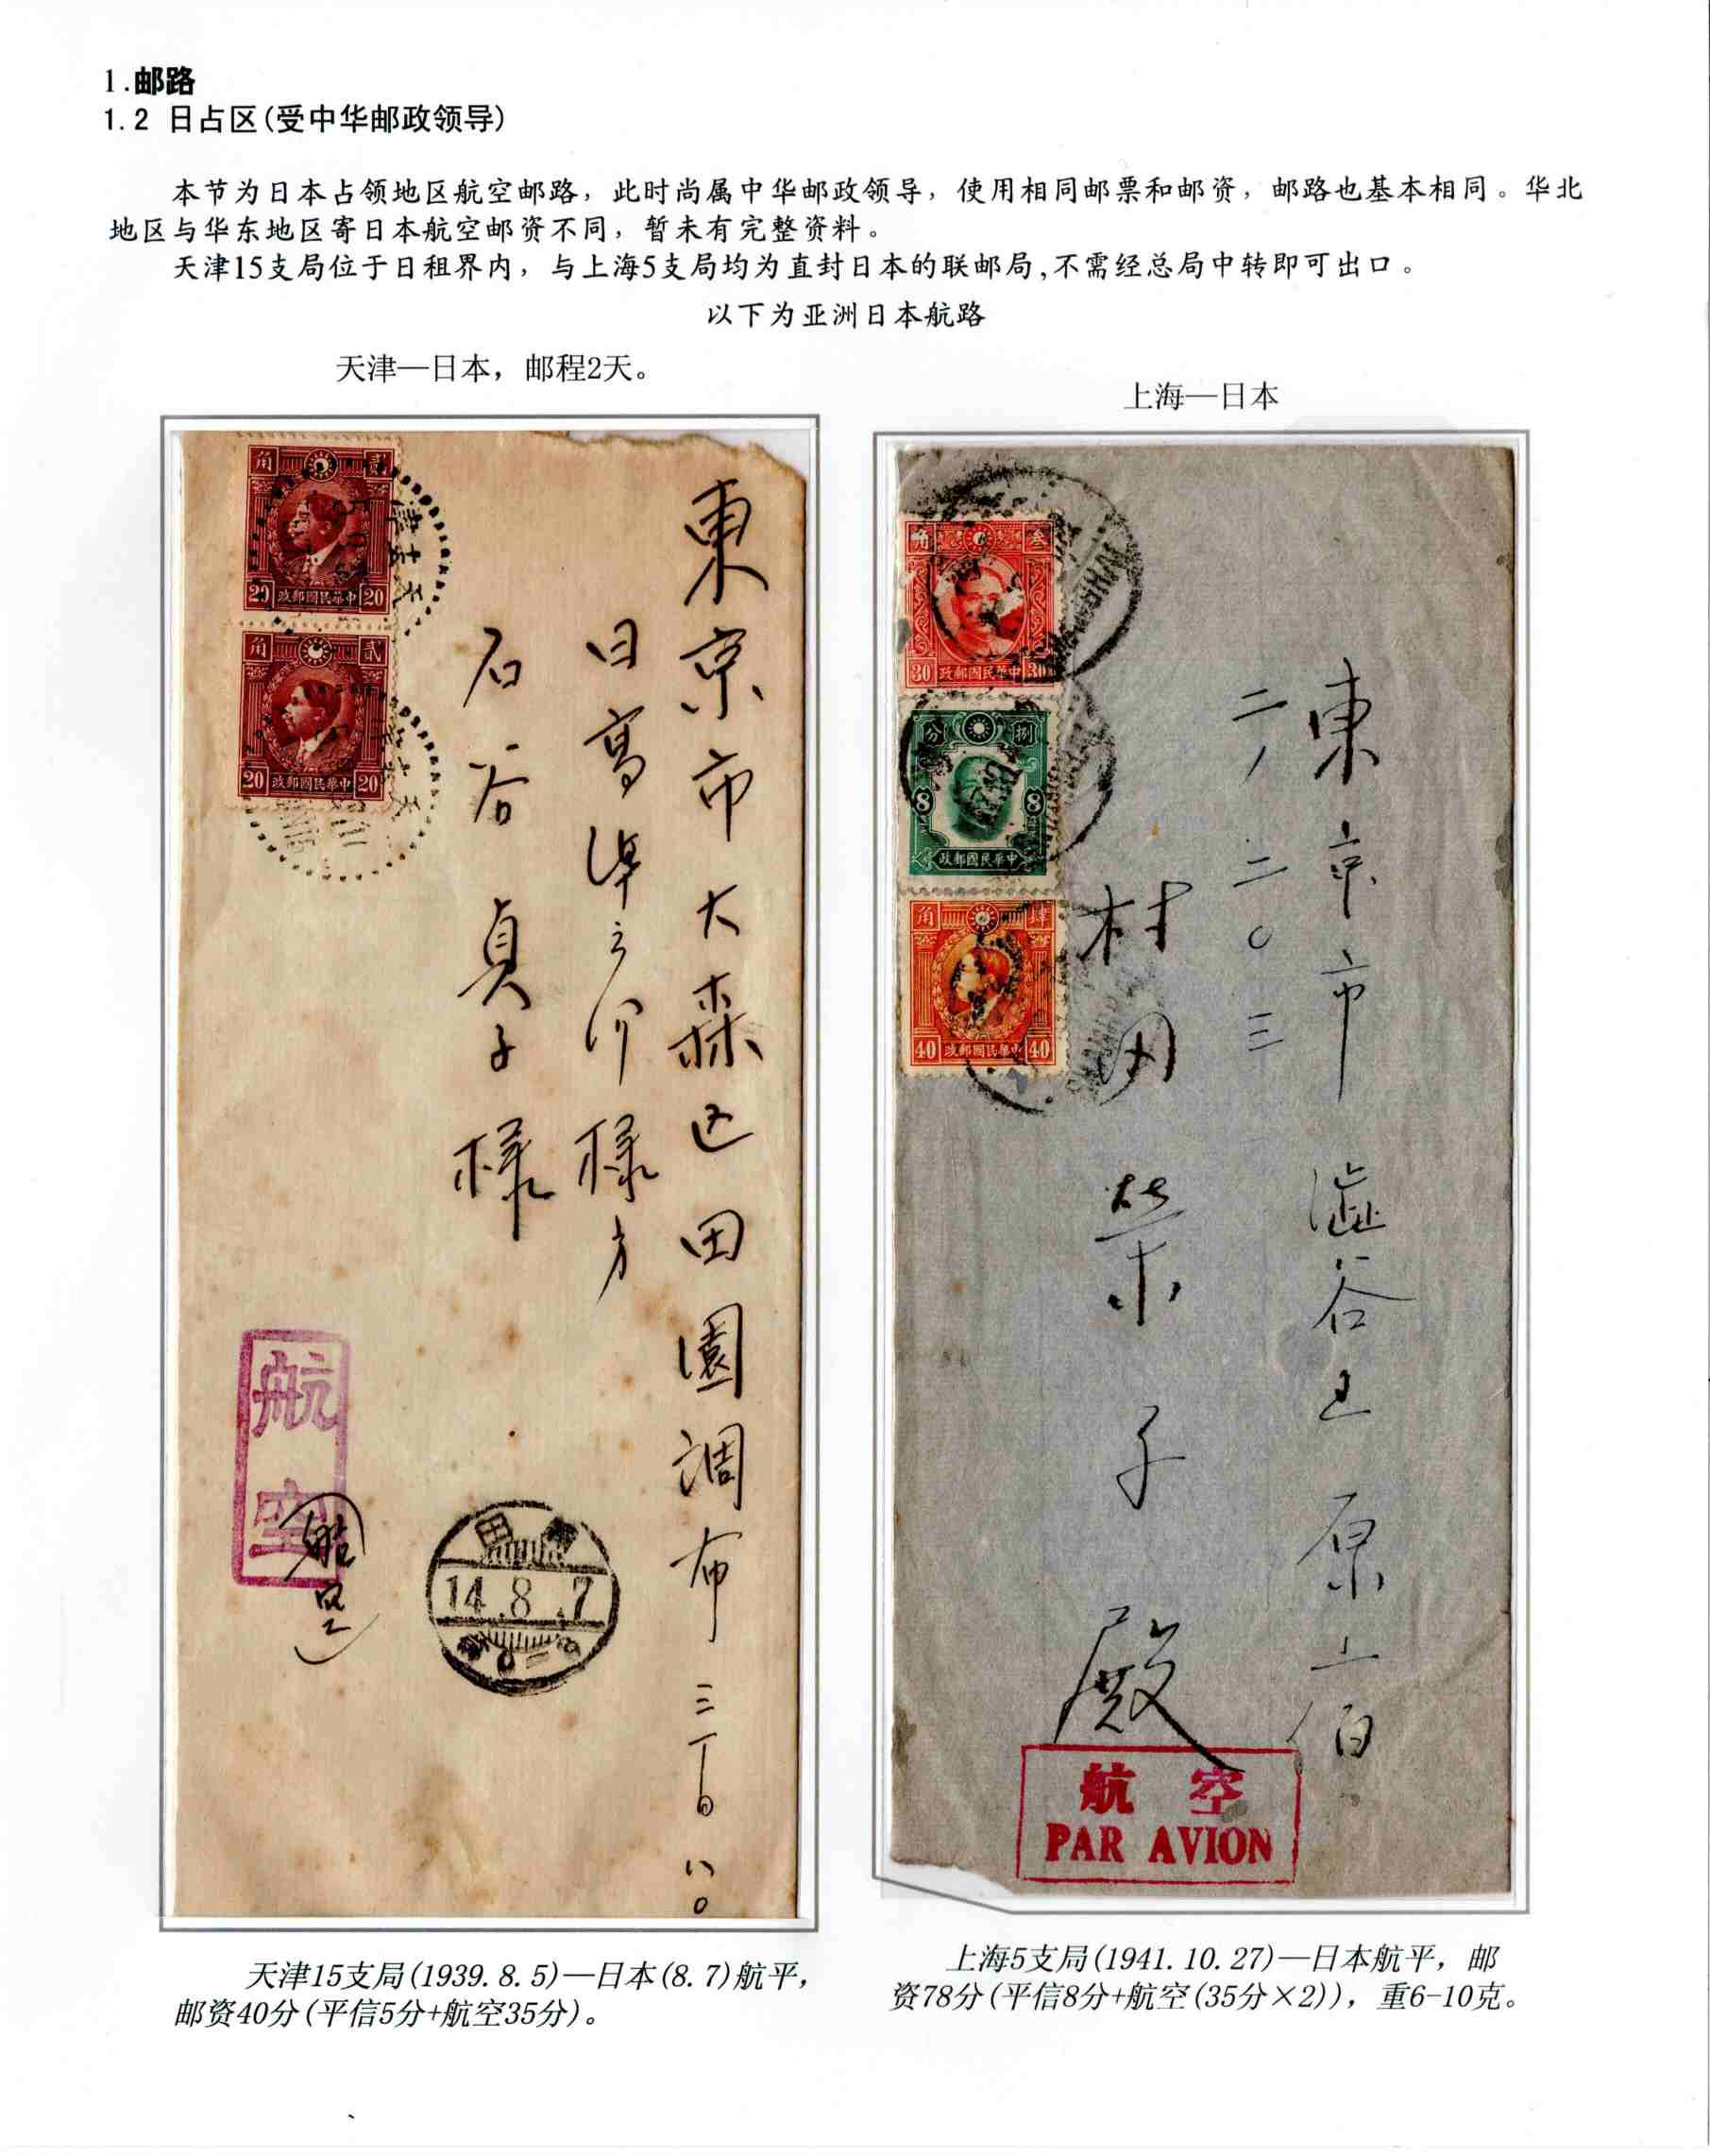 1.邮路
1.2 日占区(受中华邮政领导)
本节为日本占领地区航空邮路，此时尚属中华邮政领导，使用相同邮票和邮资，邮路也基本相同。华北
地区与华东地区寄日本航空邮资不同，暂未有完整资料。
天津15支局位于日租界内，与上海5支局均为直封日本的联邮局,不需经总局中转即可出口。
以下为亚洲日本航路
天津—日本，邮程2天。
角 貳
20 政郵國民華中 20
角 貳
20 政郵國民華中 20
東京市大森区田園調布三丁目八〇
様方
石谷貞子様
航空
14.8.7
天津15支局(1939.8.5)—日本(8.7)航平，
邮资40分(平信5分+航空35分)。
上海—日本
角 叁
30 政郵國民華中 30
分 捌
8 8
政郵國民華中
角 肆
40 政郵國民華中 40
東京市澁谷区原宿
二ノ二〇三
村田榮子殿
航 空
PAR AVION
上海5支局(1941.10.27)—日本航平，邮
资78分(平信8分+航空(35分×2))，重6-10克。